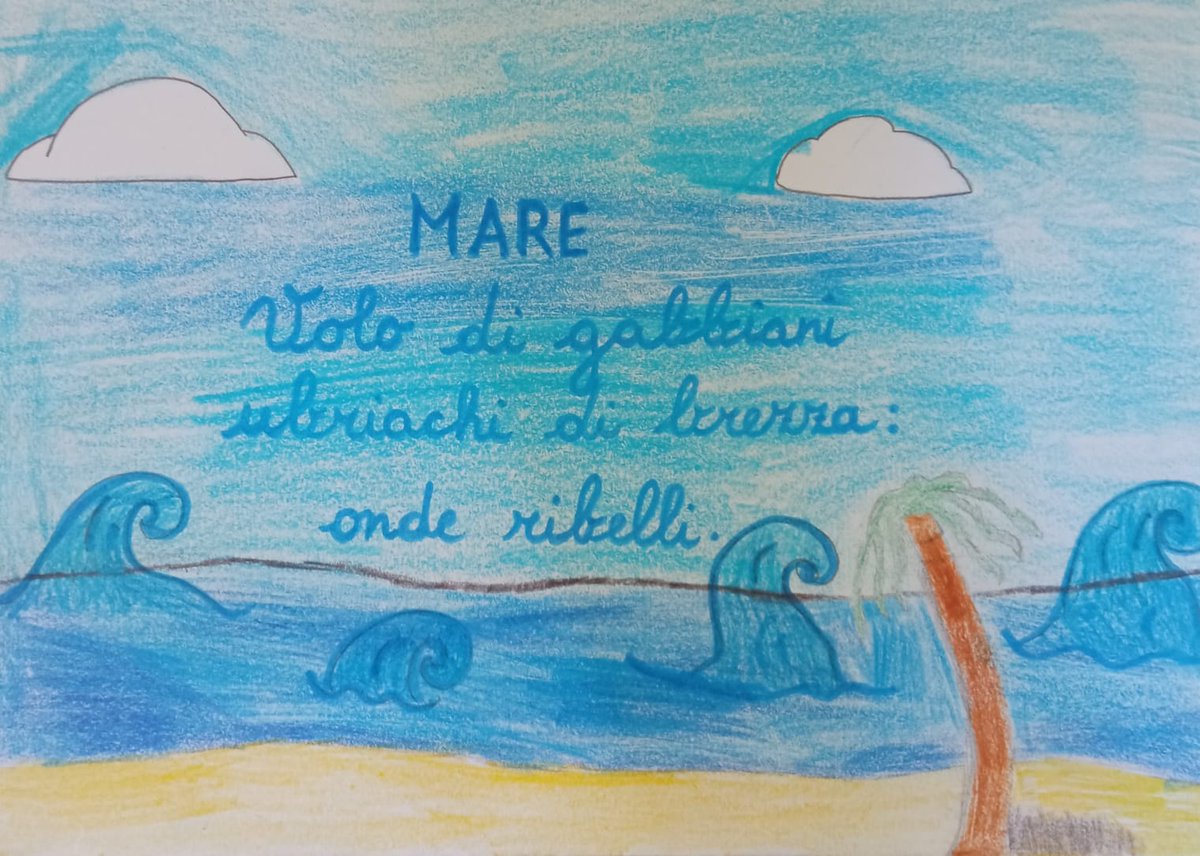 MARE
Volo di gabbiani
ubriachi di brezza:
onde ribelli.